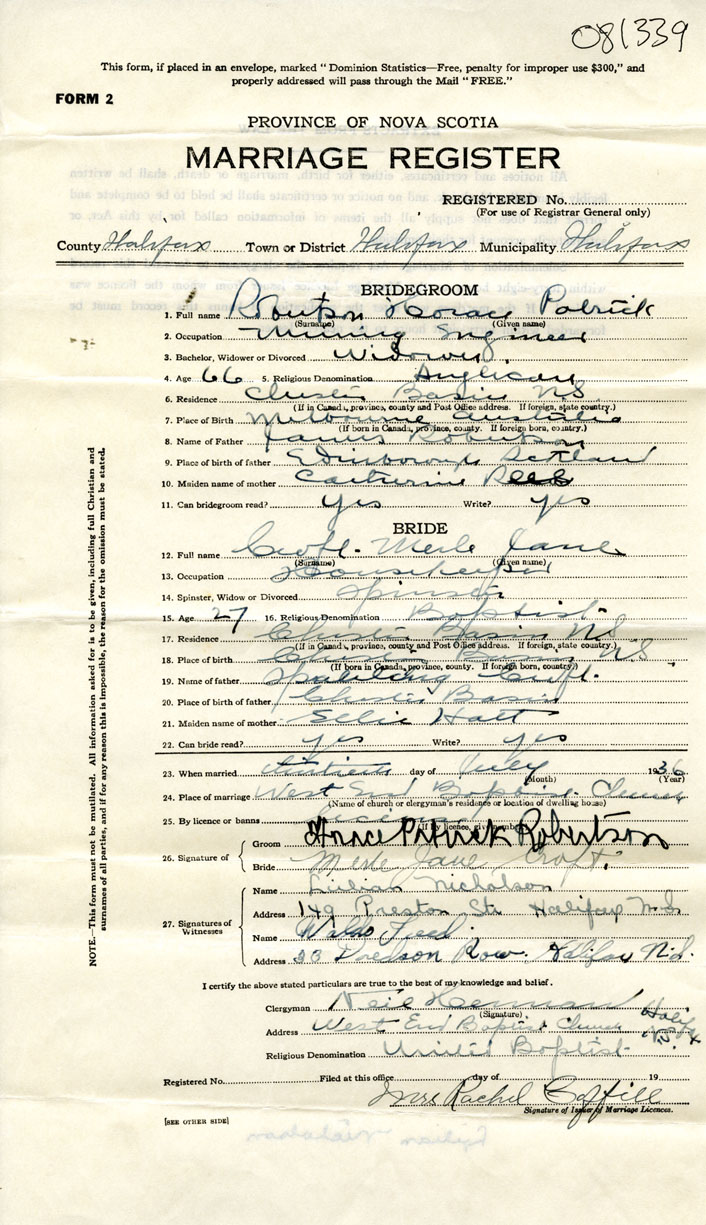 081339
This form, if placed in an envelope, marked "Dominion Statistics—Free, penalty for improper use $300," and
properly addressed will pass through the Mail "FREE."
FORM 2
PROVINCE OF NOVA SCOTIA
MARRIAGE REGISTER
REGISTERED No.
(For use of Registrar General only)
County Halifax Town or District Halifax Municipality Halifax
BRIDEGROOM
1. Full name Robertson Horace Patrick
(Surname) (Given name)
2. Occupation Mining Engineer
3. Bachelor, Widower or Divorced Widower
4. Age 66 5. Religious Denomination Anglican
6. Residence Chester Basin NS
(If in Canada, province, county and Post Office address. If foreign, state country.)
7. Place of Birth Melbourne Australia
(If born in Canada, province, county. If foreign born, country.)
8. Name of Father James Robertson
9. Place of birth of father Edinborough Scotland
10. Maiden name of mother Catherine
11. Can bridegroom read? yes Write? yes
BRIDE
12. Full name Croft. Merle Jane
(Surname) (Given name)
13. Occupation Housekeeper
14. Spinster, Widow or Divorced Spinster
15. Age 27 16. Religious Denomination Baptist
17. Residence Chester Basin NS
(If in Canada, province, county and Post Office address. If foreign, state country.)
18. Place of birth Chester Basin NS
(If born in Canada, province, county. If foreign born, country.)
19. Name of father Spalding Croft.
20. Place of birth of father Chester Basin
21. Maiden name of mother Hatt
22. Can bride read? yes Write? yes
23. When married thirtieth day of July 1936
(Month) (Year)
24. Place of marriage West End Baptist Church
(Name of church or clergyman's residence or location of dwelling house)
25. By licence or banns License
(If by licence, give number)
26. Signature of
Groom Horace Patrick Robertson
Bride Merle Jane Croft.
27. Signatures of Witnesses
Name Lillian Nicholson
Address 149 Preston St. Halifax N.S.
Name Waldo
Address 23 Row. Halifax N.S.
I certify the above stated particulars are true to the best of my knowledge and belief.
Clergyman Neil Herman
(Signature)
Address West End Baptist Church Halifax N.S.
Religious Denomination United Baptist
Registered No. Filed at this office day of 19
Mrs Rachel
Signature of Issuer of Marriage Licences.
[SEE OTHER SIDE]
NOTE.—This form must not be mutilated. All information asked for is to be given, including full Christian and
surnames of all parties, and if for any reason this is impossible, the reason for the omission must be stated.